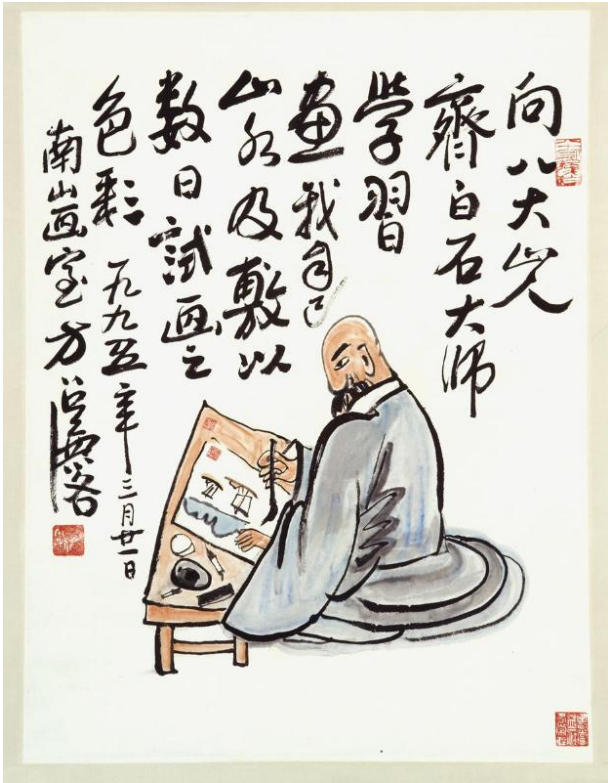 向八大山人
齊白石大师
學習
畫我自己
山水及敷以
数日試画之
色彩 一九九五年三月廿一日
南山画室方召麐